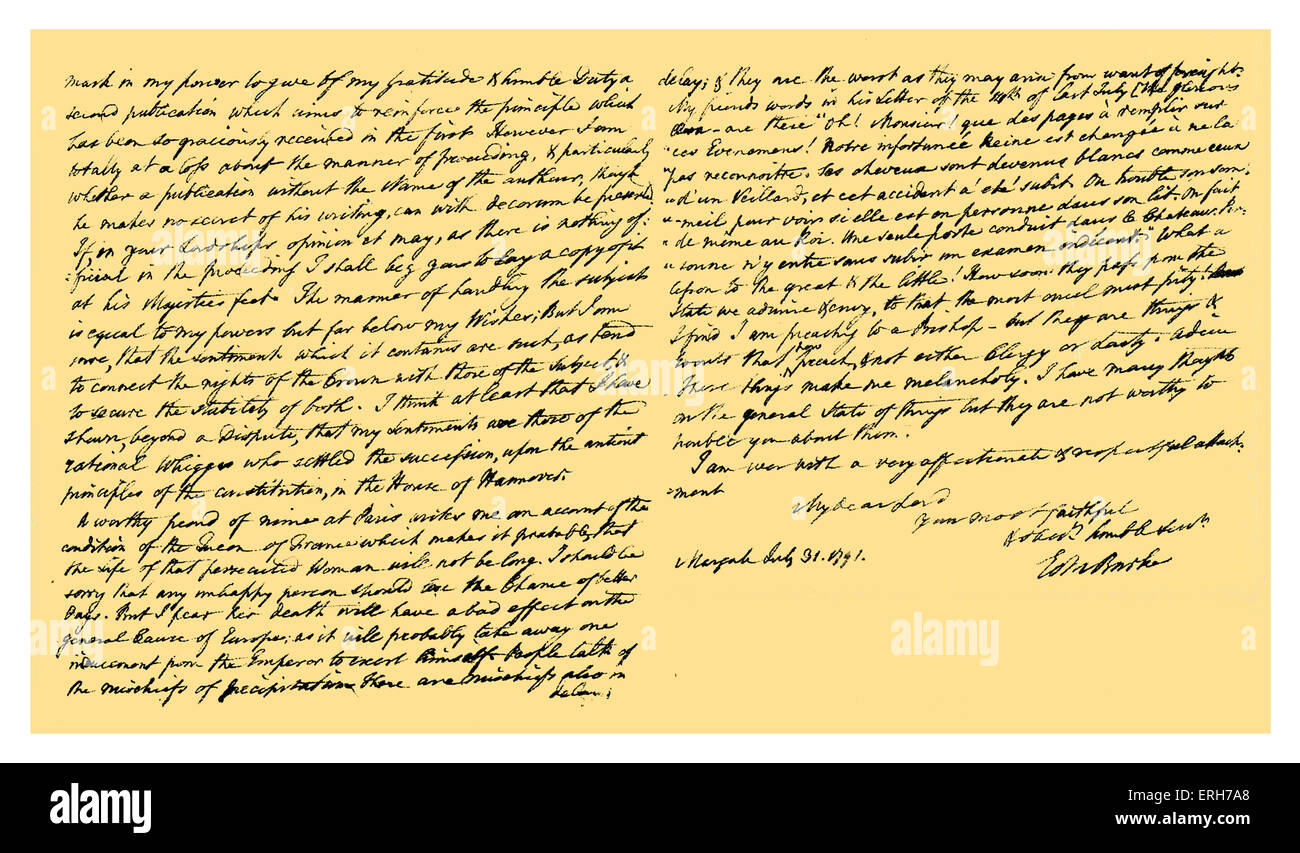 mark in my power to give of my Gratitude & humble Duty a
second publication which aims to reinforce the principle which
has been so graciously received in the first. However I am
totally at a loss about the manner of proceeding, & particularly
whether a publication without the Name of the authour, though
he makes no secret of his writing, can with decorum be presented
If, in your Lordships opinion it may, as there is nothing of-
-ficial in the proceeding I shall beg you to lay a copy of it
at his Majesties feet. The manner of handling the subject
is equal to my powers but far below my Wishes; But I am
sure, that the sentiments which it contains are such, as tend
to connect the rights of the Crown with those of the Subject &
to secure the stability of both. I think at least that I have
shewn, beyond a Dispute, that my sentiments are those of the
rational Whiggs who settled the succession, upon the antient
principles of the constitution, in the House of Hannover.
A worthy friend of mine at Paris writes me an account of the
condition of the Queen of France which makes it probable, that
the Life of that persecuted Woman will not be long. I should be
sorry that any unhappy person should lose the Chance of better
Days. But I fear her death will have a bad effect on the
general Cause of Europe; as it will probably take away one
inducement from the Emperor to exert himself. People talk of
the mischiefs of precipitation there are mischiefs also in
delay;
delay; & they are the worst as they may arise from want of foresight.
My friends words in his Letter of the 14th of last July (the glorious
are these "Oh! Monsieur! que des pages à remplir sur
"ces Evenemens! Notre infortunée Reine est changée à ne la
"pas reconnoitre. Ses cheveux sont devenus blancs comme ceux
"d'un Veillard, et cet accident a été subit. On trouble son som-
"-meil, pour voir si elle est en personne dans son lit. On fait
"de même au Roi. Une seule porte conduit dans le Chateau. Per-
"sonne n'y entre sans subir un examen indécent;" What a
lesson to the great & the little! How soon they pass from the
State we admire & envy, to that the most cruel must pity!
I find I am preaching to a Bishop - but they are things &
events that now preach, & not either Clergy or Laity. Adieu
These things make me melancholy. I have many thoughts
on the general State of things but they are not worthy to
trouble you about them.
I am ever with a very affectionate & respectful attach-
-ment
My dear Lord
Your most faithful
& obedt humble Servt
Margate July 31. 1791.
Edm Burke
alamy
a
alamy stock photo
ERH7A8
www.alamy.com